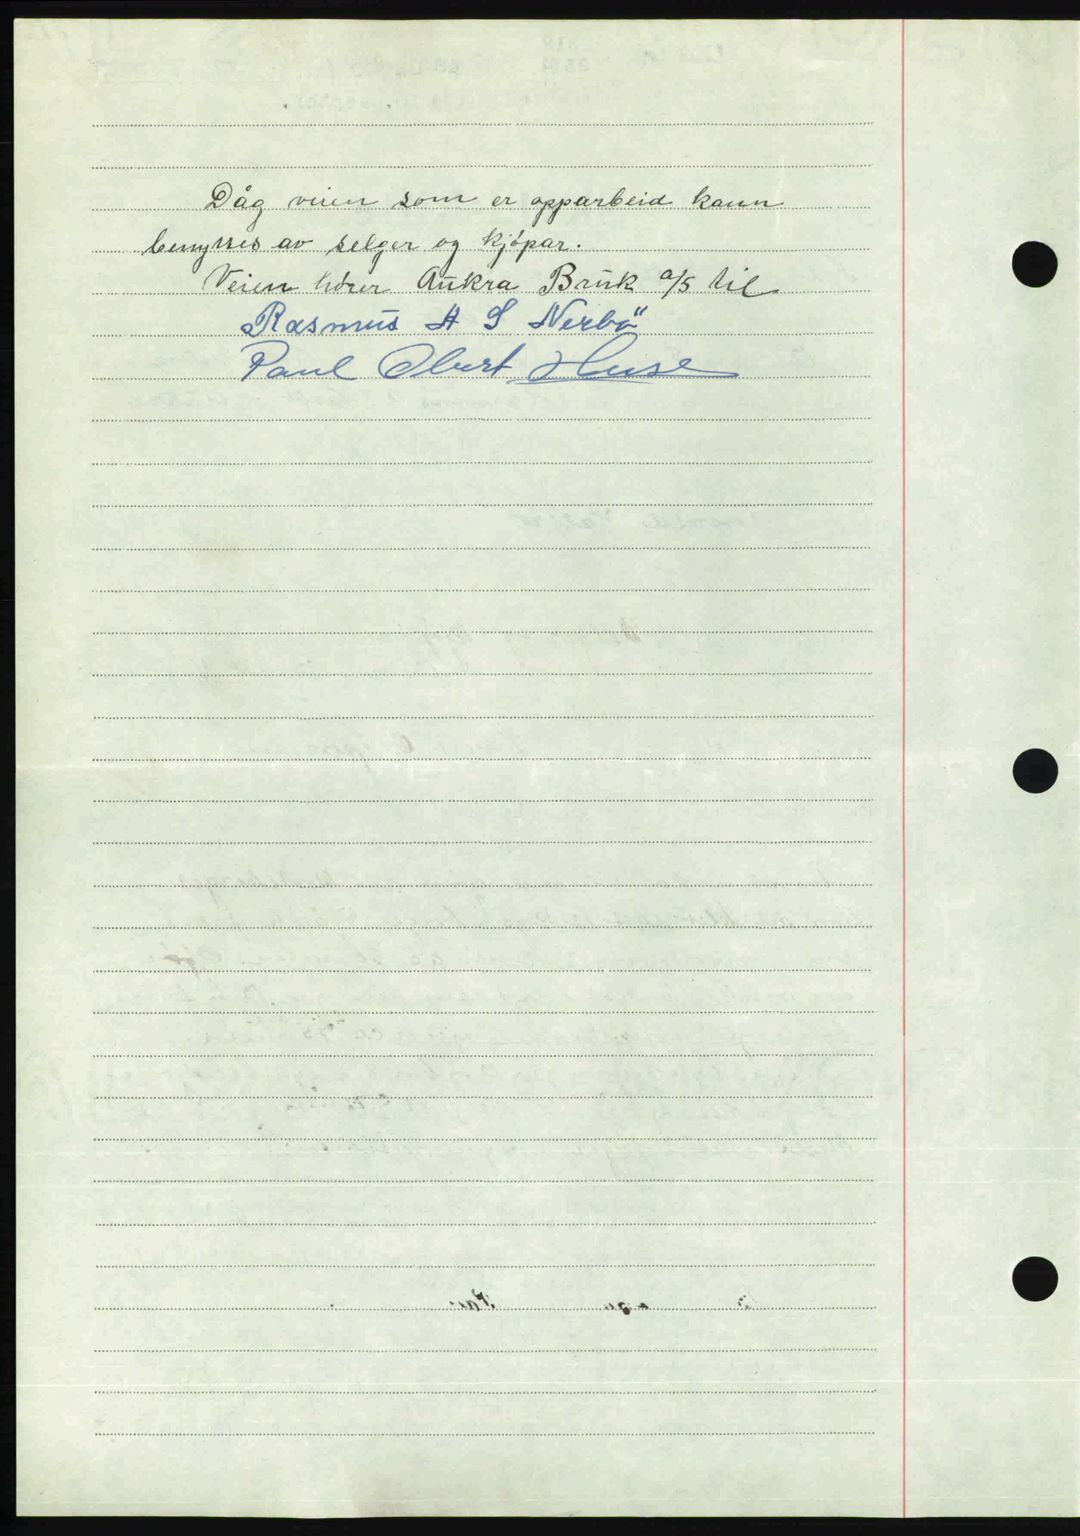 Dåg veien som er opparbeid kann
benyttes av selger og kjøpar.
Veien hörer Aukra Bruk a/s til
Rasmus A S Nerbö
Paul Obert Huse